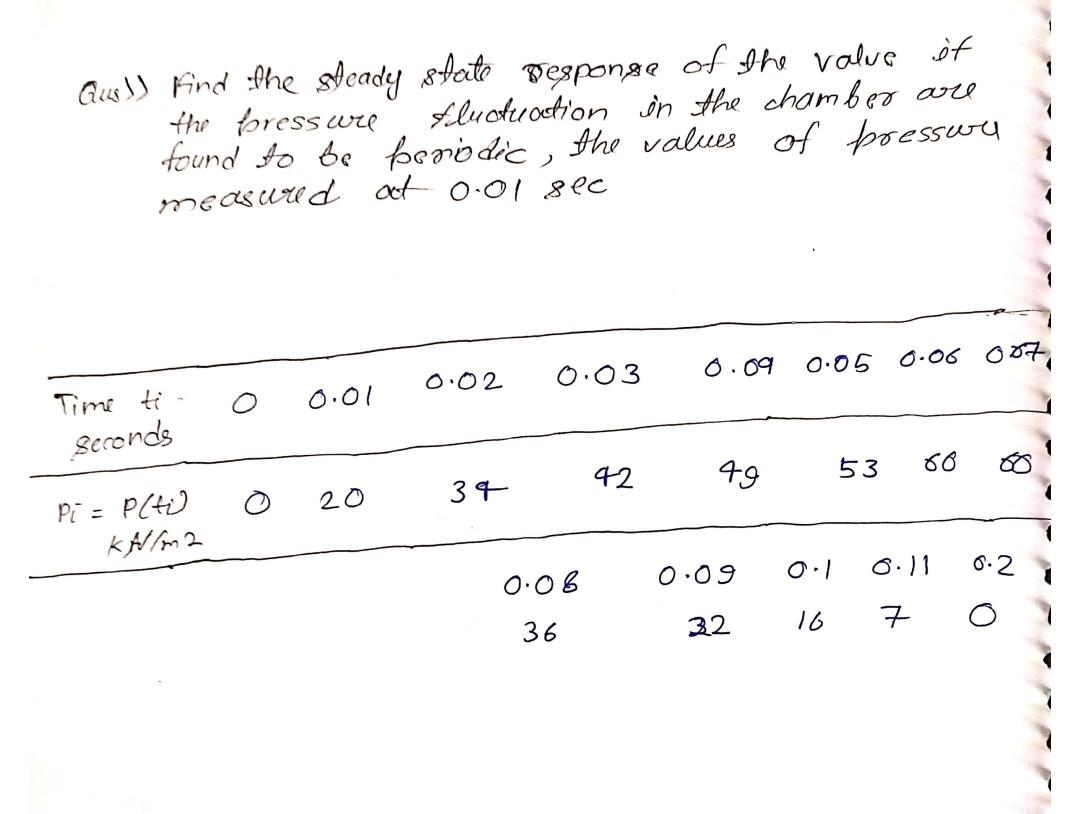 Ques)) Find the steady state response of the valve if
the pressure fluctuation in the chamber are
found to be periodic, the values of pressure
measured at 0.01 sec
Time ti - 0 0.01 0.02 0.03 0.04 0.05 0.06 0.07
seconds
Pi = P(ti) 0 20 34 42 49 53 60
kN/m2
0.08 0.09 0.1 0.11 0.2
36 22 16 7 0